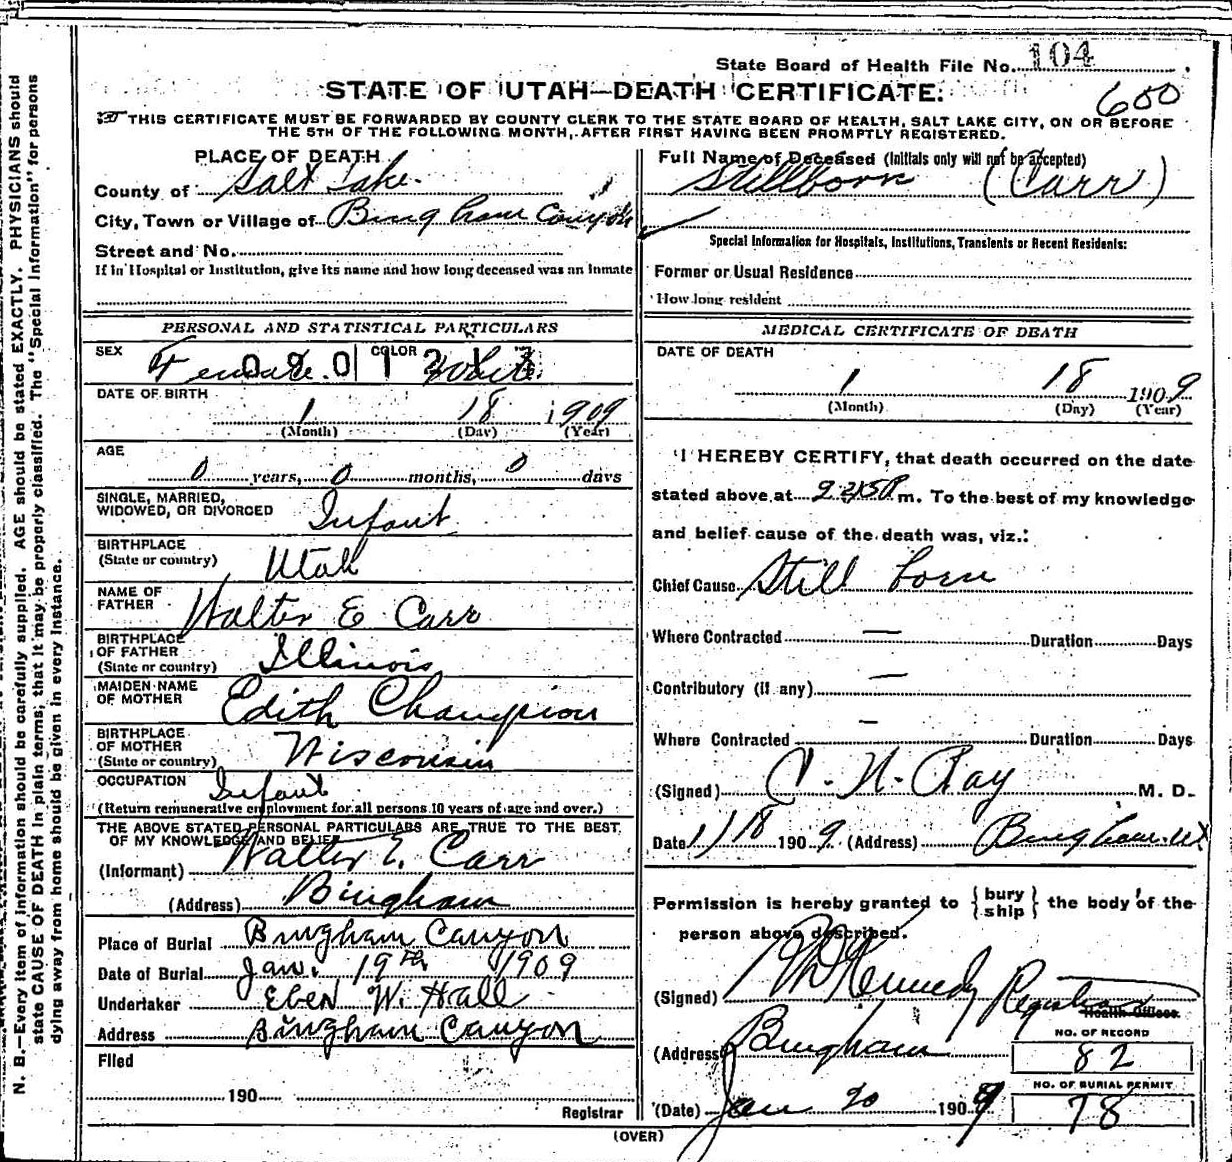 State Board of Health File No. 104
STATE OF UTAH—DEATH CERTIFICATE.
600
THIS CERTIFICATE MUST BE FORWARDED BY COUNTY CLERK TO THE STATE BOARD OF HEALTH, SALT LAKE CITY, ON OR BEFORE
THE 5TH OF THE FOLLOWING MONTH, AFTER FIRST HAVING BEEN PROMPTLY REGISTERED.
PLACE OF DEATH
County of Salt Lake
City, Town or Village of Bingham Canyon
Street and No.
If in Hospital or Institution, give its name and how long deceased was an inmate
Full Name of Deceased (Initials only will not be accepted)
Stillborn (Carr)
Special Information for Hospitals, Institutions, Transients or Recent Residents:
Former or Usual Residence
How long resident
PERSONAL AND STATISTICAL PARTICULARS
SEX Female COLOR White
DATE OF BIRTH
1 18 1909
(Month) (Day) (Year)
AGE
0 years, 0 months, 0 days
SINGLE, MARRIED,
WIDOWED, OR DIVORCED Infant
BIRTHPLACE
(State or country) Utah
NAME OF
FATHER Walter E Carr
BIRTHPLACE
OF FATHER
(State or country) Illinois
MAIDEN NAME
OF MOTHER Edith Champion
BIRTHPLACE
OF MOTHER
(State or country) Wisconsin
OCCUPATION Infant
(Return remunerative employment for all persons 10 years of age and over.)
THE ABOVE STATED PERSONAL PARTICULARS ARE TRUE TO THE BEST
OF MY KNOWLEDGE AND BELIEF
(Informant) Walter E. Carr
(Address) Bingham
Place of Burial Bingham Canyon
Date of Burial Jan. 19th 1909
Undertaker Eben W. Hall
Address Bingham Canyon
Filed
190
Registrar
MEDICAL CERTIFICATE OF DEATH
DATE OF DEATH
1 18 1909
(Month) (Day) (Year)
I HEREBY CERTIFY, that death occurred on the date
stated above at m. To the best of my knowledge
and belief cause of the death was, viz.:
Chief Cause Still born
Where Contracted — Duration Days
Contributory (if any) —
Where Contracted — Duration Days
(Signed) C. N. Ray M. D.
Date 1/18 1909 (Address) Bingham Ut
Permission is hereby granted to {bury
ship} the body of the
person above described.
(Signed) Kennedy Registrar
Health Officer
(Address) Bingham
NO. OF RECORD
82
NO. OF BURIAL PERMIT
78
(Date) Jan 20 1909
(OVER)
N. B.—Every item of information should be carefully supplied. AGE should be stated EXACTLY. PHYSICIANS should
state CAUSE OF DEATH in plain terms; that it may be properly classified. The "Special Information" for persons
dying away from home should be given in every instance.